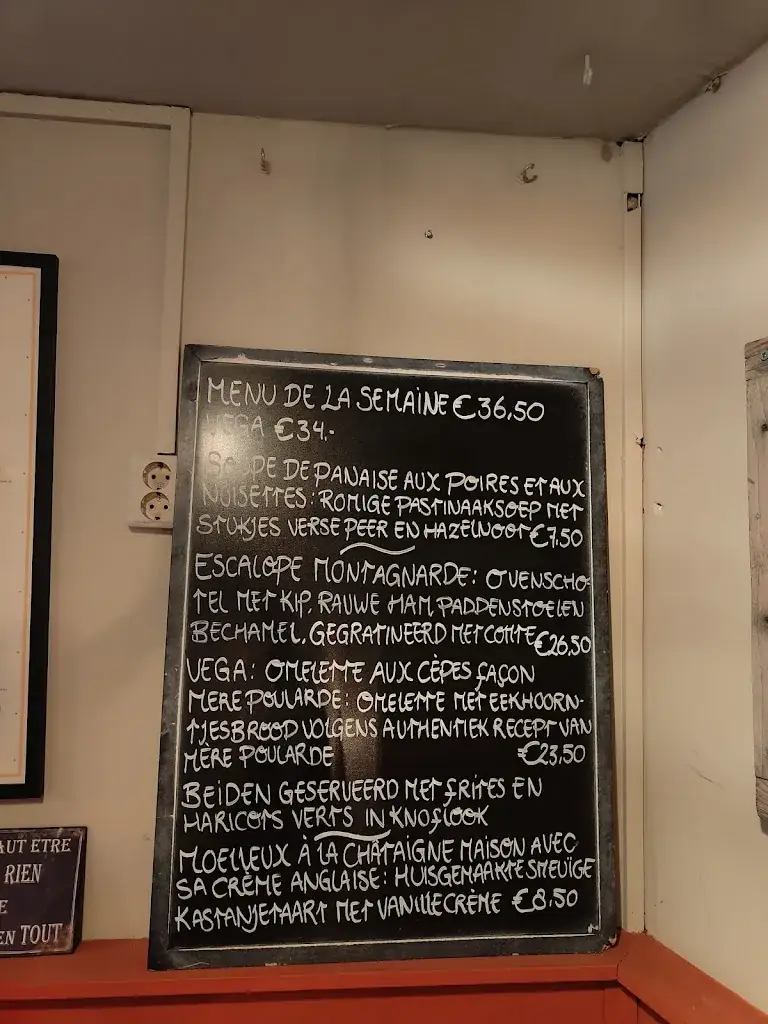 MENU DE LA SEMAINE €36,50
VEGA €34.-
SOUPE DE PANAISE AUX POIRES ET AUX
NOISETTES: ROMIGE PASTINAAKSOEP MET
STUKJES VERSE PEER EN HAZELNOOT €7,50
ESCALOPE MONTAGNARDE: OVENSCHO-
TEL MET KIP, RAUWE HAM, PADDENSTOELEN
BECHAMEL, GEGRATINEERD MET COMTE €26,50
VEGA: OMELETTE AUX CÈPES FAÇON
MERE POULARDE: OMELETTE MET EEKHOORN-
TJESBROOD VOLGENS AUTHENTIEK RECEPT VAN
MÈRE POULARDE €23,50
BEIDEN GESERVEERD MET FRITES EN
HARICOTS VERTS IN KNOFLOOK
MOELLEUX À LA CHÂTAIGNE MAISON AVEC
SA CRÈME ANGLAISE: HUISGEMAAKTE SMEUÏGE
KASTANJETAART MET VANILLECRÈME €8,50
AUT ETRE
RIEN
E
EN TOUT